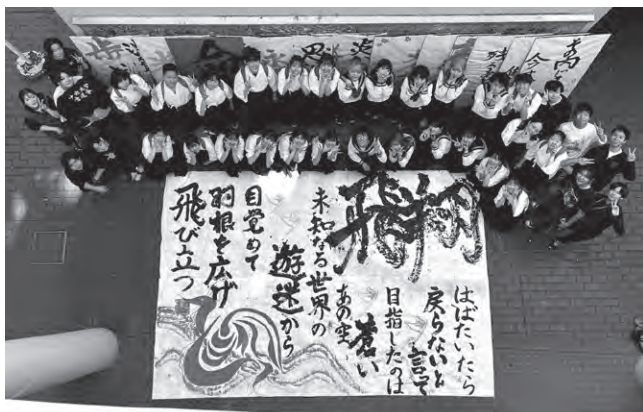 飛翔
はばたいたら
戻らないと言って
目指したのは
蒼い
あの空
未知なる世界の
遊迷から
目覚めて
羽根を広げ
飛び立つ